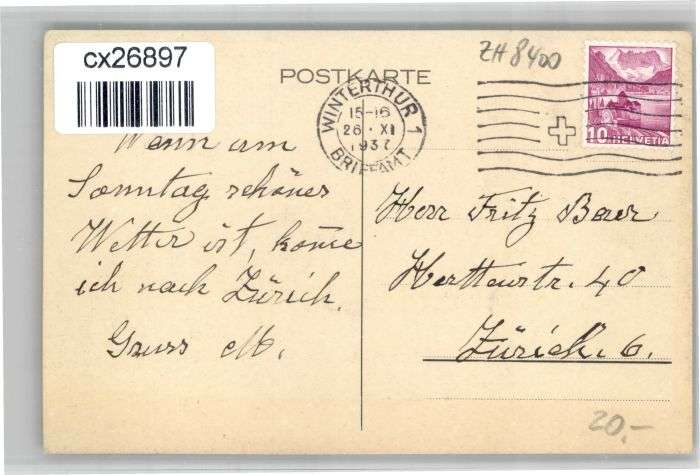 cx26897
ZH 8400
POSTKARTE
WINTERTHUR 1
15-16
26 · XI
1937
BRIEFAMT
10 HELVETIA
Wenn am
Sonntag schönes
Wetter ist, kome
ich nach Zürich.
Gruss M.
Herr Fritz
40
Zürich 6.
20.-